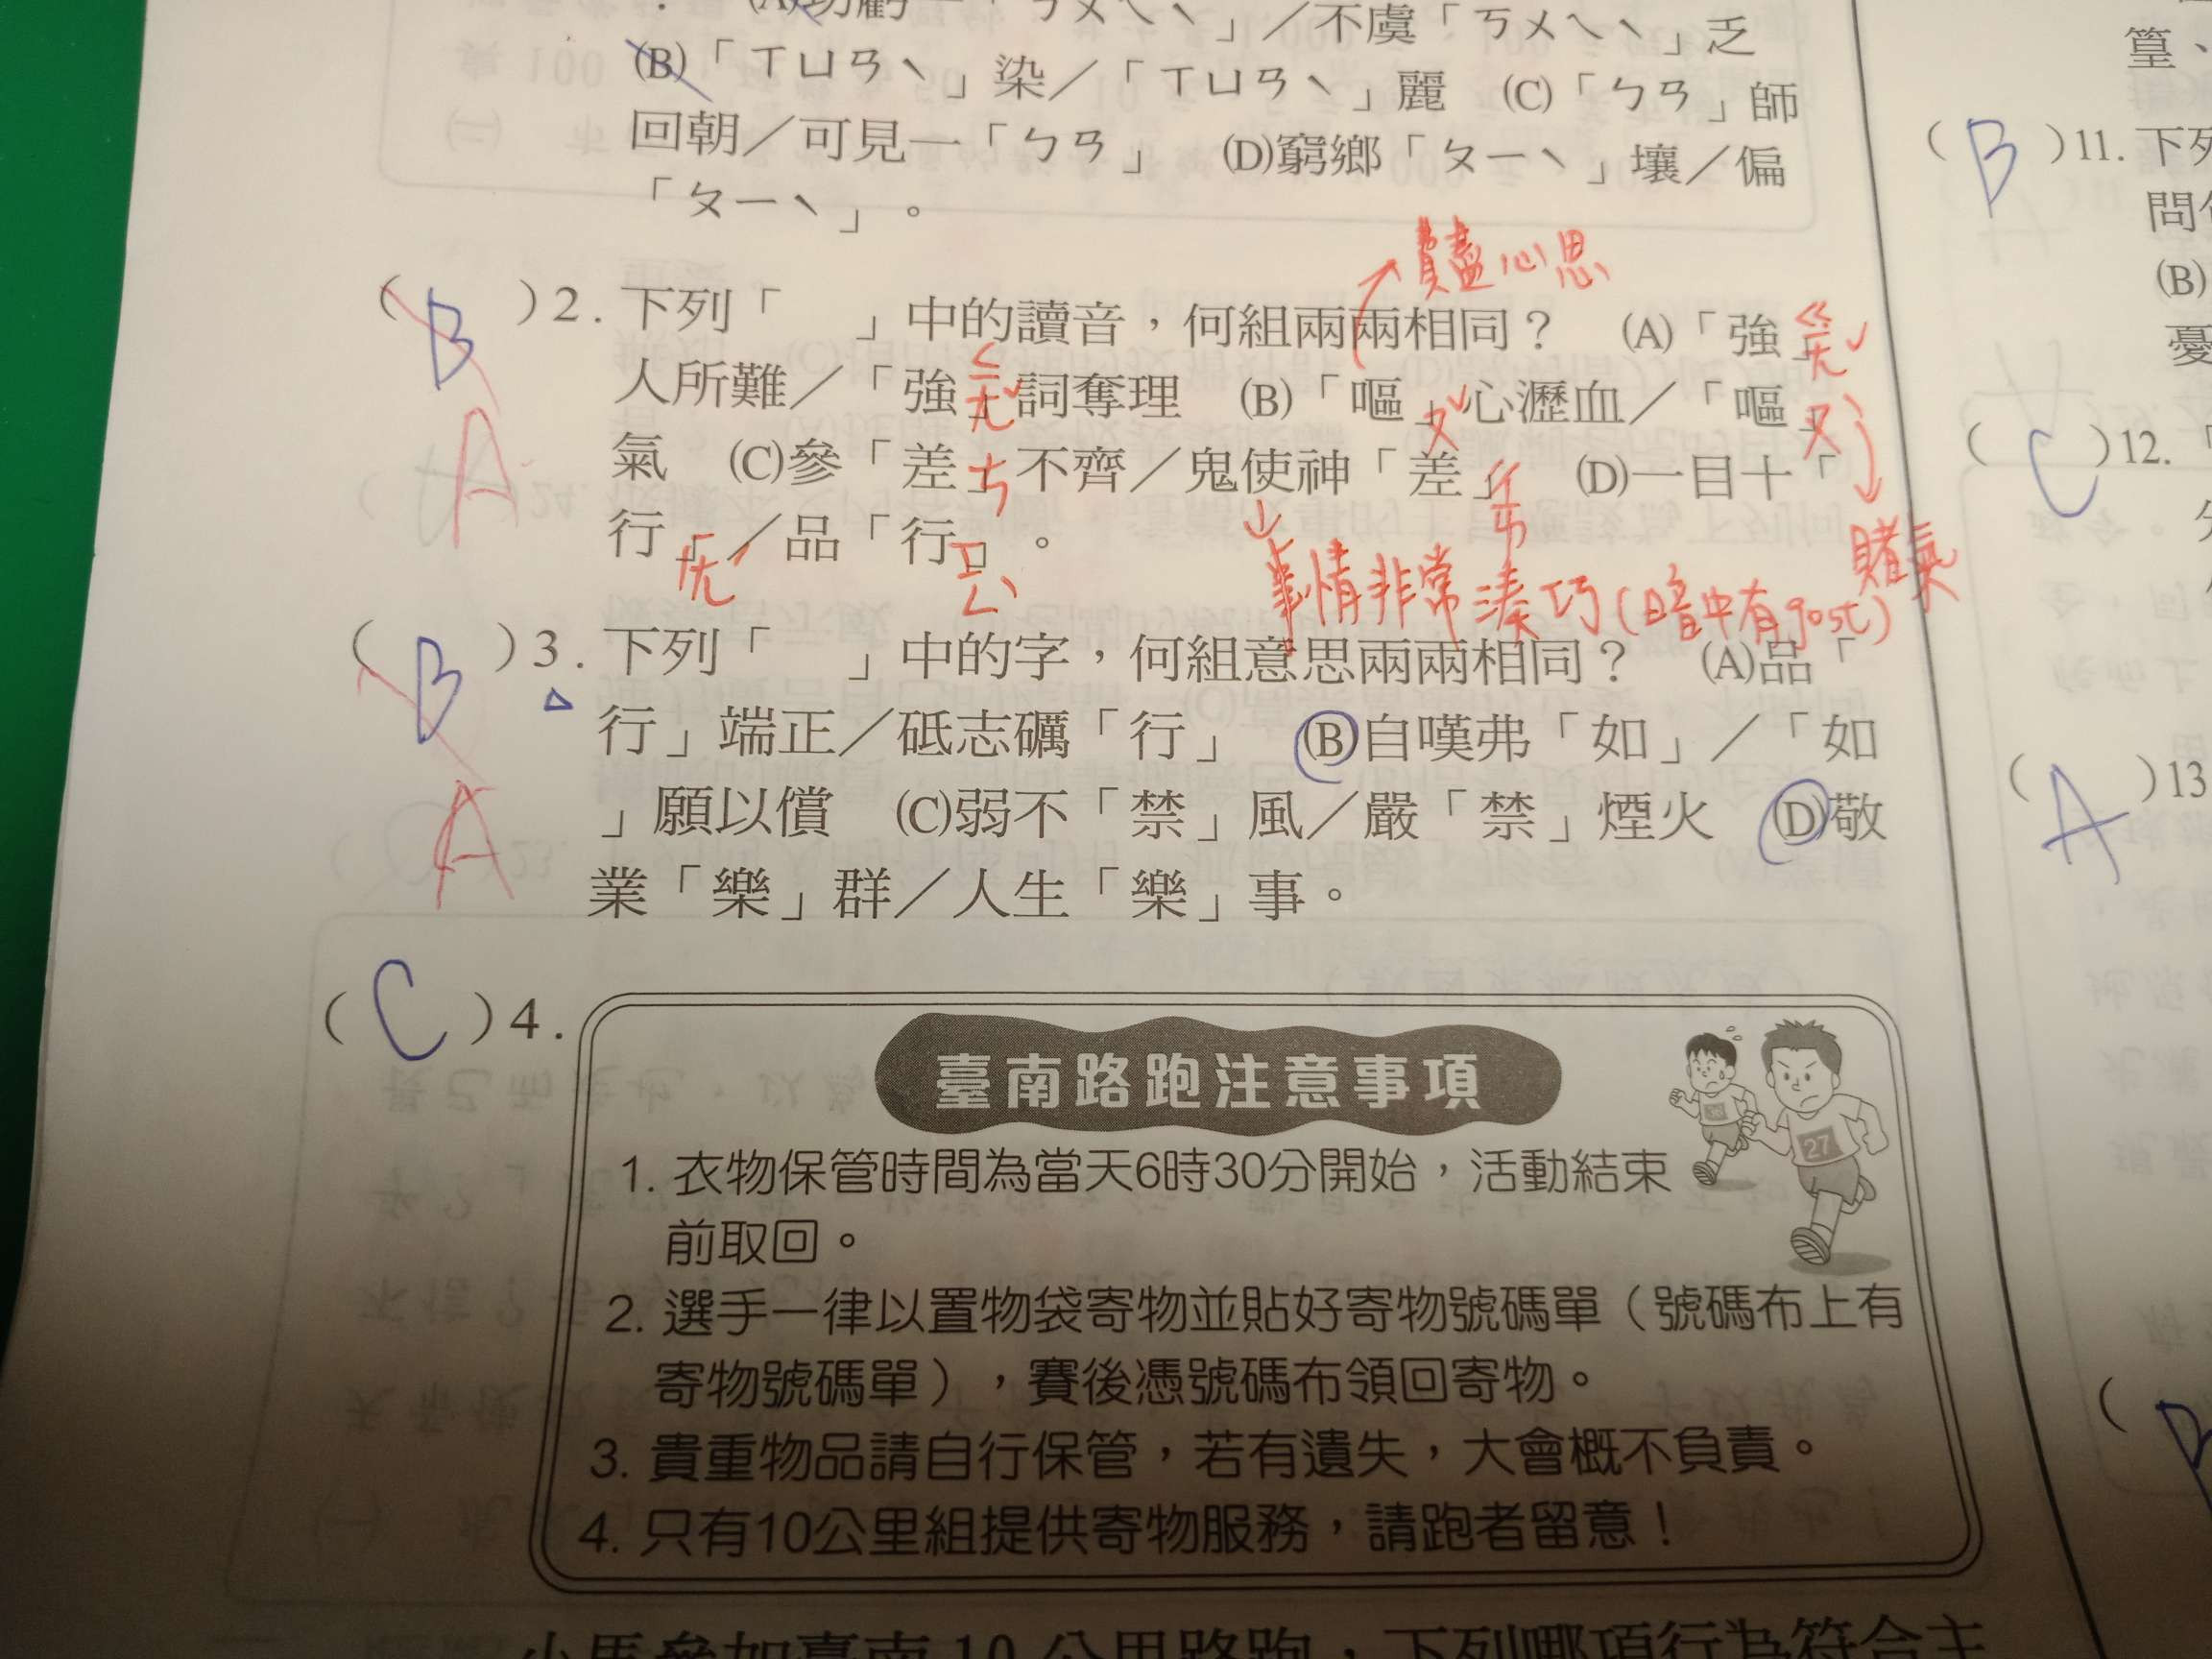 「ㄎㄨㄟˋ」／不虞「ㄎㄨㄟˋ」乏
(B)「ㄒㄩㄢˋ」染／「ㄒㄩㄢˋ」麗　(C)「ㄅㄢ」師
回朝／可見一「ㄅㄢ」　(D)窮鄉「ㄆㄧˋ」壤／偏
「ㄆㄧˋ」。
費盡心思
(B)2. 下列「　」中的讀音，何組兩兩相同？　(A)「強」ㄑㄧㄤˇ
人所難／「強」ㄑㄧㄤˇ詞奪理　(B)「嘔」ㄡˇ心瀝血／「嘔」ㄡˋ
氣　(C)參「差」ㄘ不齊／鬼使神「差」ㄔㄞ　(D)一目十「
行」ㄏㄤˊ／品「行」ㄒㄧㄥˋ。
A
賭氣
事情非常湊巧(暗中有gost)
(B)3. 下列「　」中的字，何組意思兩兩相同？　(A)品「
行」端正／砥志礪「行」　(B)自嘆弗「如」／「如
」願以償　(C)弱不「禁」風／嚴「禁」煙火　(D)敬
業「樂」群／人生「樂」事。
A
(C)4.
臺南路跑注意事項
1. 衣物保管時間為當天6時30分開始，活動結束
前取回。
2. 選手一律以置物袋寄物並貼好寄物號碼單（號碼布上有
寄物號碼單），賽後憑號碼布領回寄物。
3. 貴重物品請自行保管，若有遺失，大會概不負責。
4. 只有10公里組提供寄物服務，請跑者留意！
27
小馬參加臺南10公里路跑，下列哪項行為符合主
篁、
(B)11. 下列
(B)
憂
(C)12.
(A)13